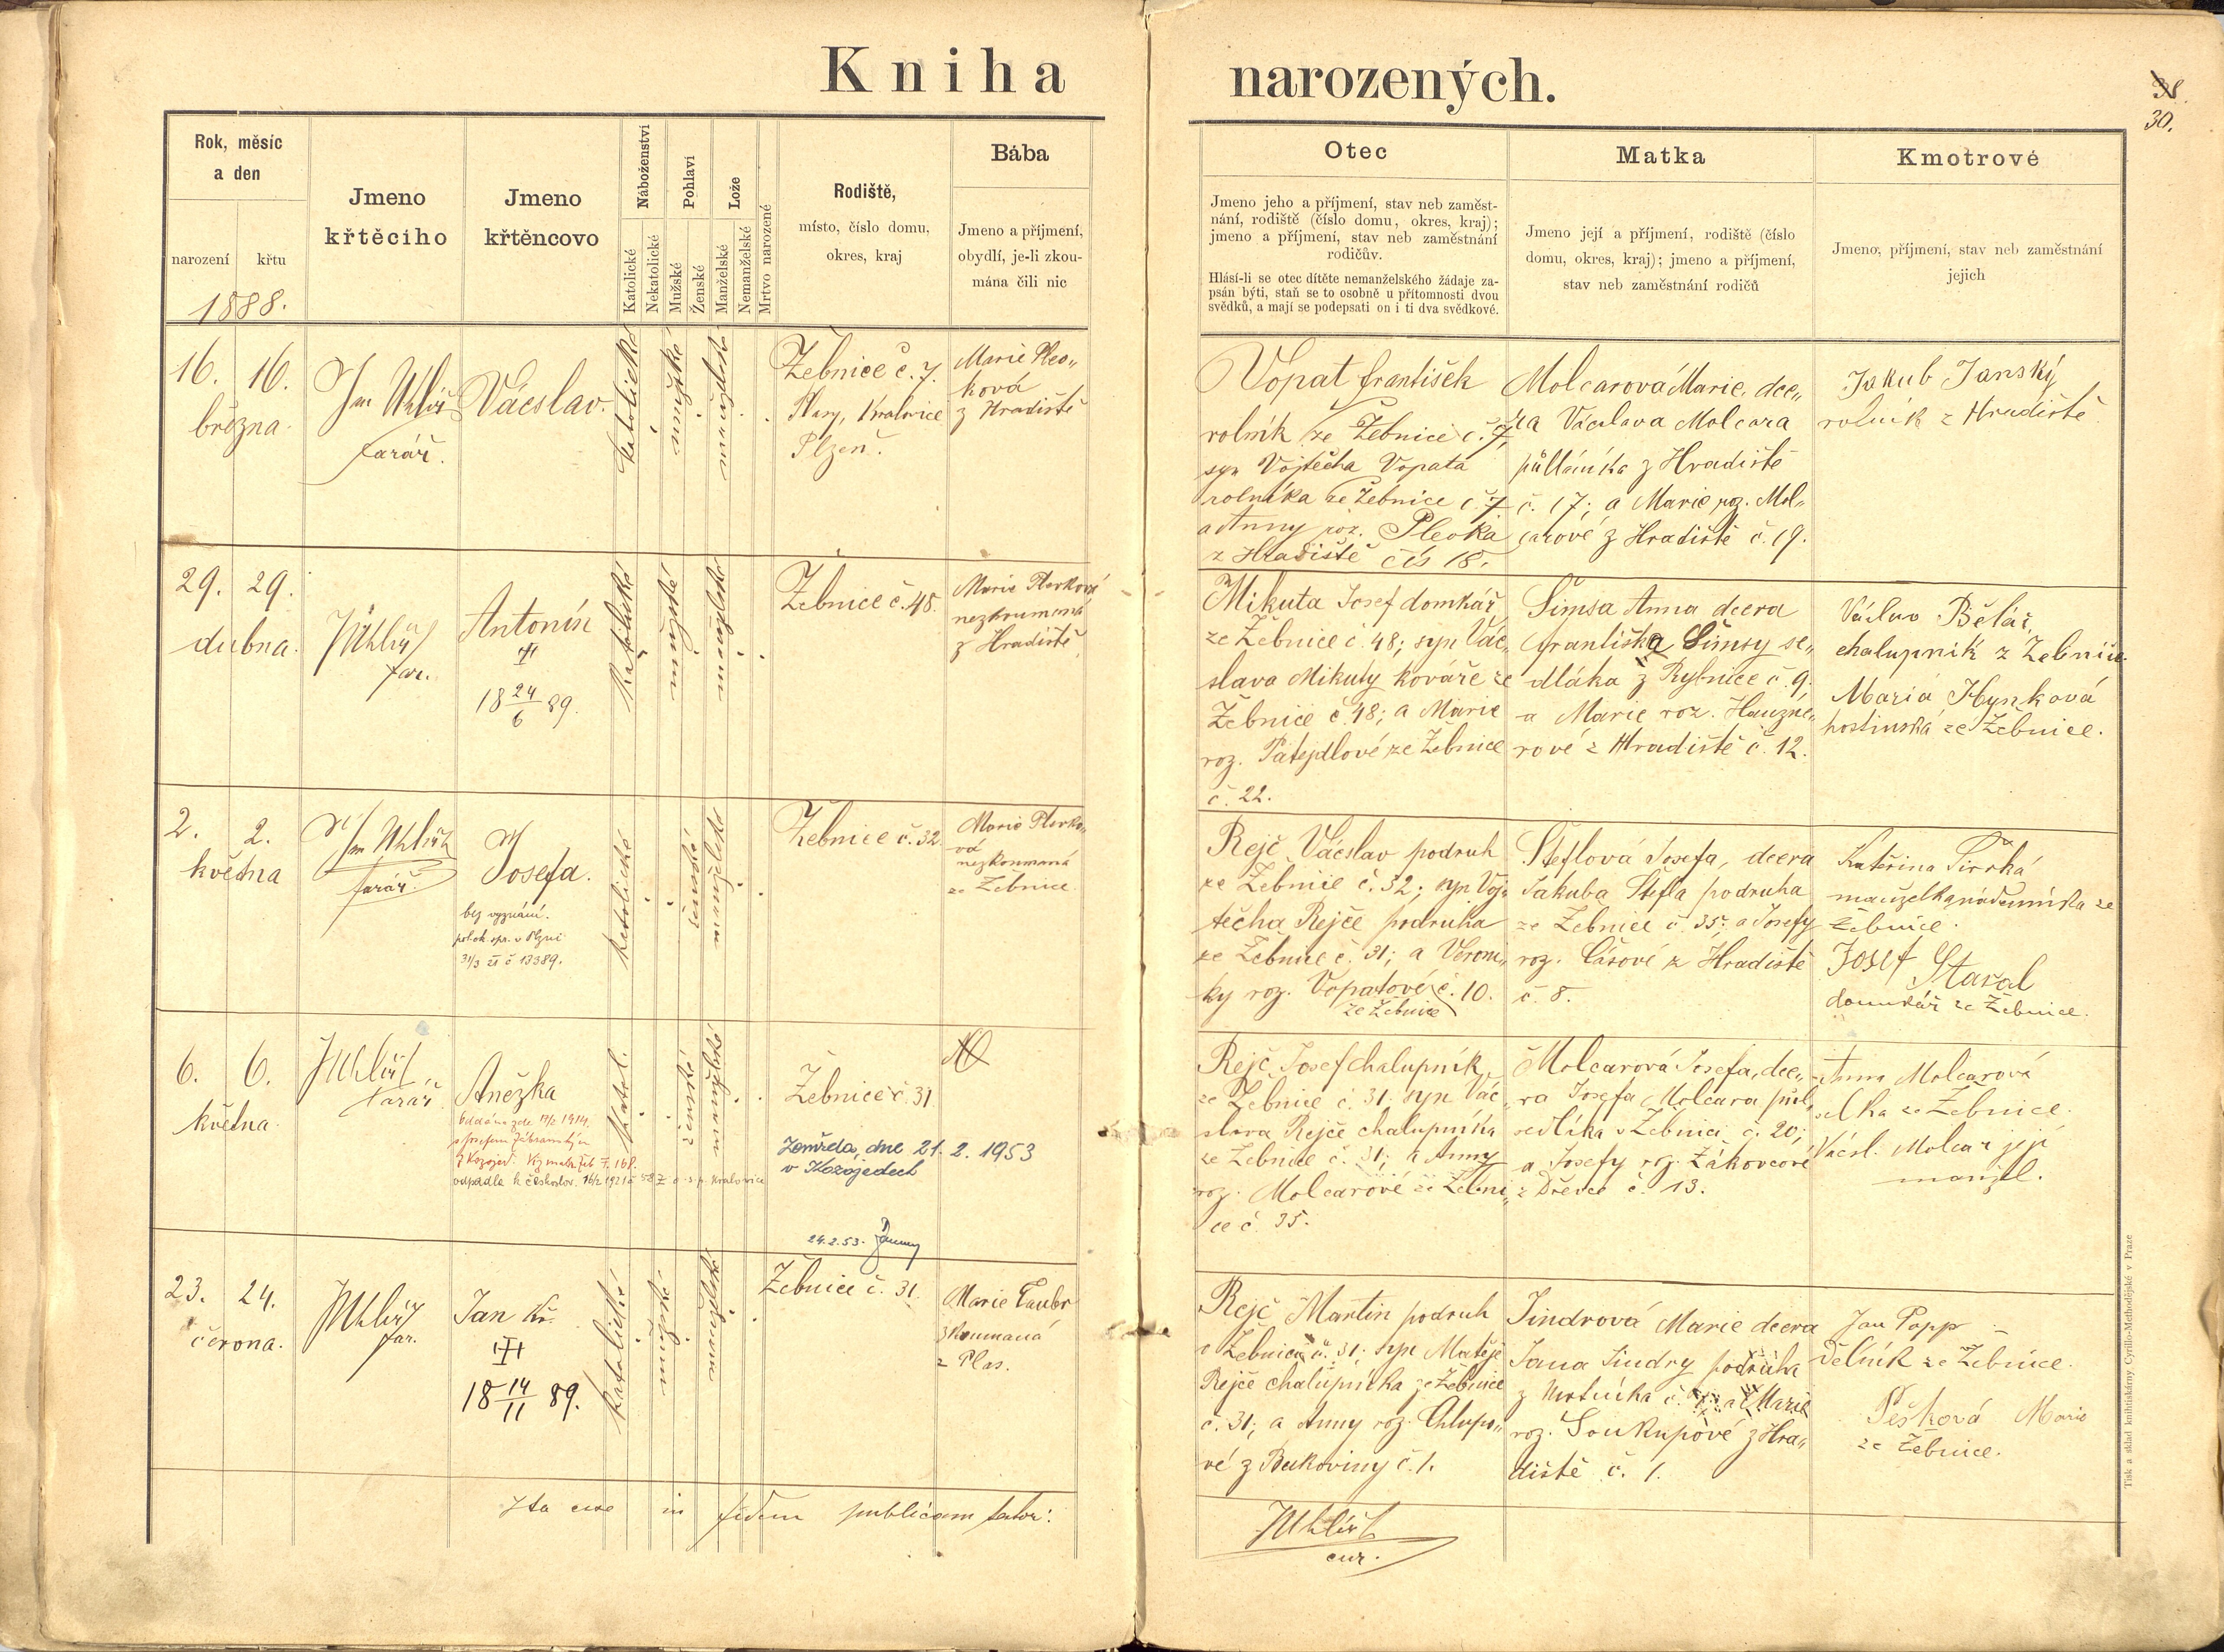 Kniha narozených.
38.
30.
Rok, měsíc
a den
narození
křtu
1888.
Jmeno
křtěcího
Jmeno
křtěncovo
Náboženství
Katolické
Nekatolické
Pohlaví
Mužské
Ženské
Lože
Manželské
Nemanželské
Mrtvo narozené
Rodiště,
místo, číslo domu,
okres, kraj
Bába
Jmeno a příjmení,
obydlí, je-li zkou-
mána čili nic
Otec
Jmeno jeho a příjmení, stav neb zaměst-
nání, rodiště (číslo domu, okres, kraj);
jmeno a příjmení, stav neb zaměstnání
rodičův.
Hlásí-li se otec dítěte nemanželského žádaje za-
psán býti, staň se to osobně u přítomnosti dvou
svědků, a mají se podepsati on i ti dva svědkové.
Matka
Jmeno její a příjmení, rodiště (číslo
domu, okres, kraj); jmeno a příjmení,
stav neb zaměstnání rodičů
Kmotrové
Jmeno, příjmení, stav neb zaměstnání
jejich
16. 16.
března.
Uhlíř
farář.
Vácslav.
katolické
mužské
manželské
Žebnice č. 7.
Plasy, Kralovice
Plzeň.
Marie Pleo„
ková
z Hradiště
Vopat František
rolník ze Žebnice č. 7,
syn Vojtěcha Vopata
rolníka ze Žebnice č. 7
a Anny roz. Pleoka
z Hradiště čís 18.
Molcarová Marie, dce„
ra Václava Molcara
půlláníka z Hradiště
č. 17; a Marie roz. Mol„
carové z Hradiště č. 19.
Jakub Janský
rolník z Hradiště
29. 29.
dubna.
JUhlíř
far.
Antonín
18 24/6 89.
katolické
mužské
manželské
Žebnice č. 48.
z Hradiště
Mikuta Josef domkář
ze Žebnice č. 48; syn Vác„
slava Mikuty kováře ze
Žebnice č. 48; a Marie
roz. Patejdlové ze Žebnice
č. 22.
Šimsa Anna dcera
Františka Šimsy se„
dláka z Rybnice č. 9,
a Marie roz. Hauzne„
rové z Hradiště č. 12.
Václav Bělář,
chalupník z Žebnice.
Maria Hynková
hostinská ze Žebnice.
2. 2.
května
Uhlíř
farář.
Josefa.
bez vyznání.
31/3 21 č 13389.
katolické
ženské
manželské
Žebnice č. 32.
nezkoumaná
ze Žebnice
Rejč Vácslav podruh
ze Žebnice č. 32; syn Voj„
těcha Rejče podruha
ze Žebnice č. 31; a Veroni„
ky roz. Vopatové č. 10.
ze Žebnice
Šteflová Josefa, dcera
Jakuba Štefla podruha
ze Žebnice č. 35; a Josefy
roz. Cásové z Hradiště
č. 8.
Kateřina
manželka nádenníka ze
Žebnice.
Josef Stasal
domkář ze Žebnice.
6. 6.
května
JUhlíř
farář
Anežka
Oddána zde 17/2 1914,
s Josefem
z Kozojed.
odpadla k českoslov. 16/2 1921 č 58 z o. s. p. Kralovice
Katol.
ženské
manželské
Žebnice č. 31
Zemřela, dne 21. 2. 1953
v Kozojedech
24.2.53.
Rejč Josef chalupník
ze Žebnice č. 31. syn Vác„
slava Rejče chalupníka
ze Žebnice č. 31; a Anny
roz. Molcarové ze Žebni„
ce č. 35.
Molcarová Josefa, dce„
ra Josefa Molcara půl„
sedláka v Žebnici č. 20;
a Josefy roz. Žákovcové
z Dřevce č. 13.
Anna Molcarová
selka ze Žebnice.
Václ. Molcar její
manžel.
23. 24.
června.
JUhlíř
far.
Jan Kř.
18 14/11 89.
katolické
mužské
manželské
Žebnice č. 31.
Marie Taubr
zkoumaná
z Plas.
Rejč Martin podruh
v Žebnici č. 31; syn Matěje
Rejče chalupníka ze Žebnice
č. 31; a Anny roz. Chlupo„
vé z Bukoviny č. 1.
Jindrová Marie dcera
Jana Jindry podruha
z a Marie
roz. Soukupové z Hra„
diště č. 1.
Jan Popp
dělník ze Žebnice.
Pešková Marie
ze Žebnice.
Ita esse in fidem publicam fateor:
JUhlíř
cur.
Tisk a sklad knihtiskárny Cyrillo-Methodějské v Praze